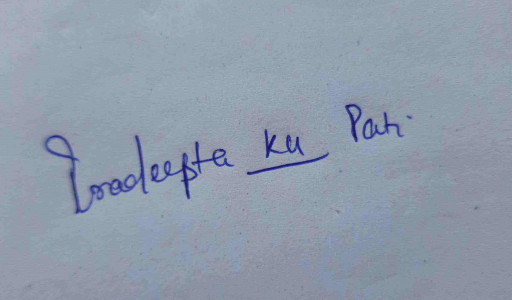 Pradeepta Ku Pati